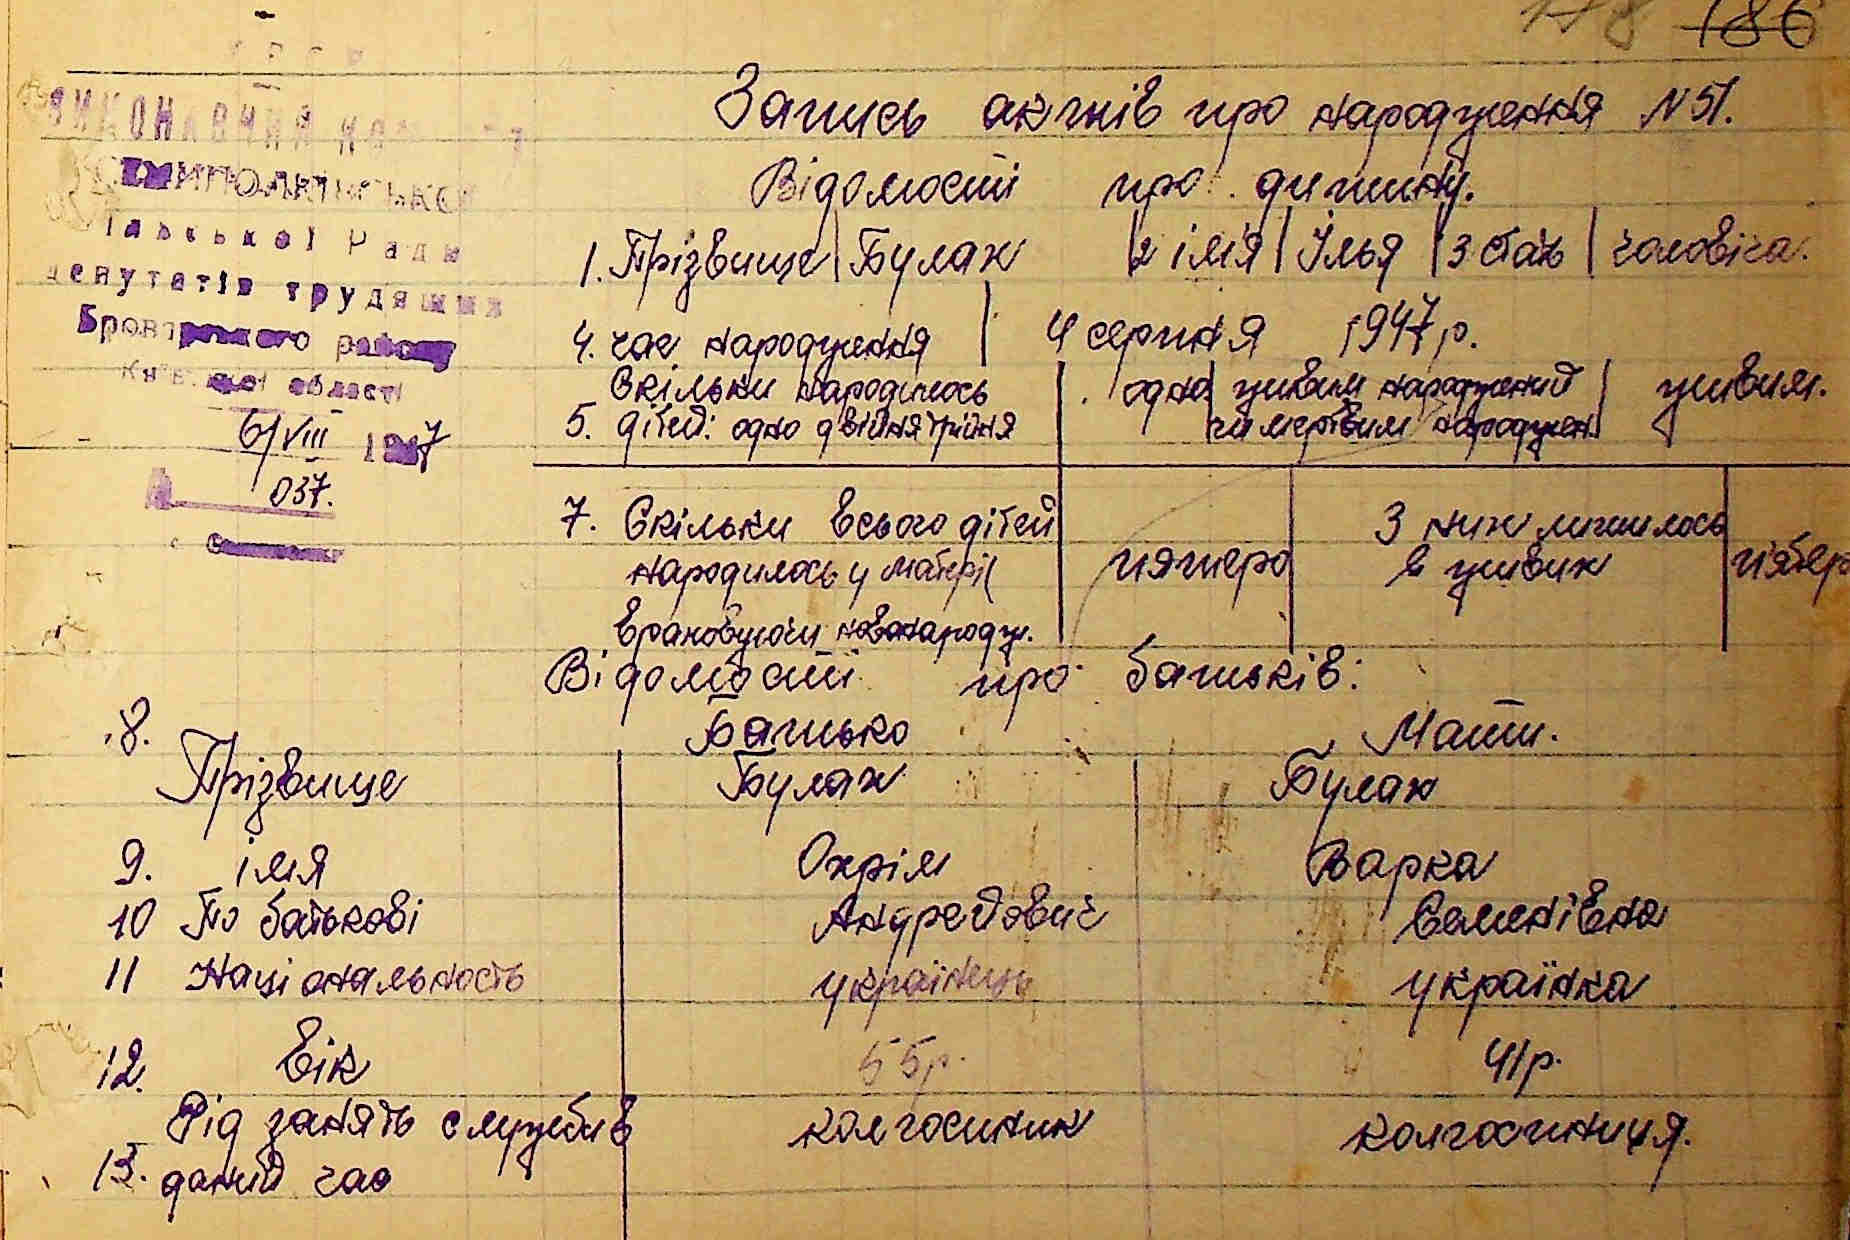 118 186
УРСР
ВИКОНАВЧИЙ КОМІТЕТ
СЕМИПОЛКІВСЬКОЇ
сільської Ради
депутатів трудящих
Броварського району
Київської області
6/VIII 1947
037.
Запись актів про народження N 51.
Відомості про дитину.
1. Прізвище | Булах | 2 імʼя | Ілья | 3 стать | чоловіча.
4. час народження | 4 серпня 1947 р.
Скільки народилось одно живим народжений | живим.
5. дітей: одно двійня трійня чи мертвим народжен.
7. Скільки всього дітей З них лишилось
народилось у матері пятеро в живих пятеро
враховуючи новонародж.
Відомості про батьків:
8. Батько Мати.
Прізвище Булах Булах
9. імя Охрім Варка
10 По батькові Андрейович Семенівна
11 Національность українець українка
12. Вік 55р. 41р.
Рід занять служби в колгоспник колгоспниця.
13. даний час